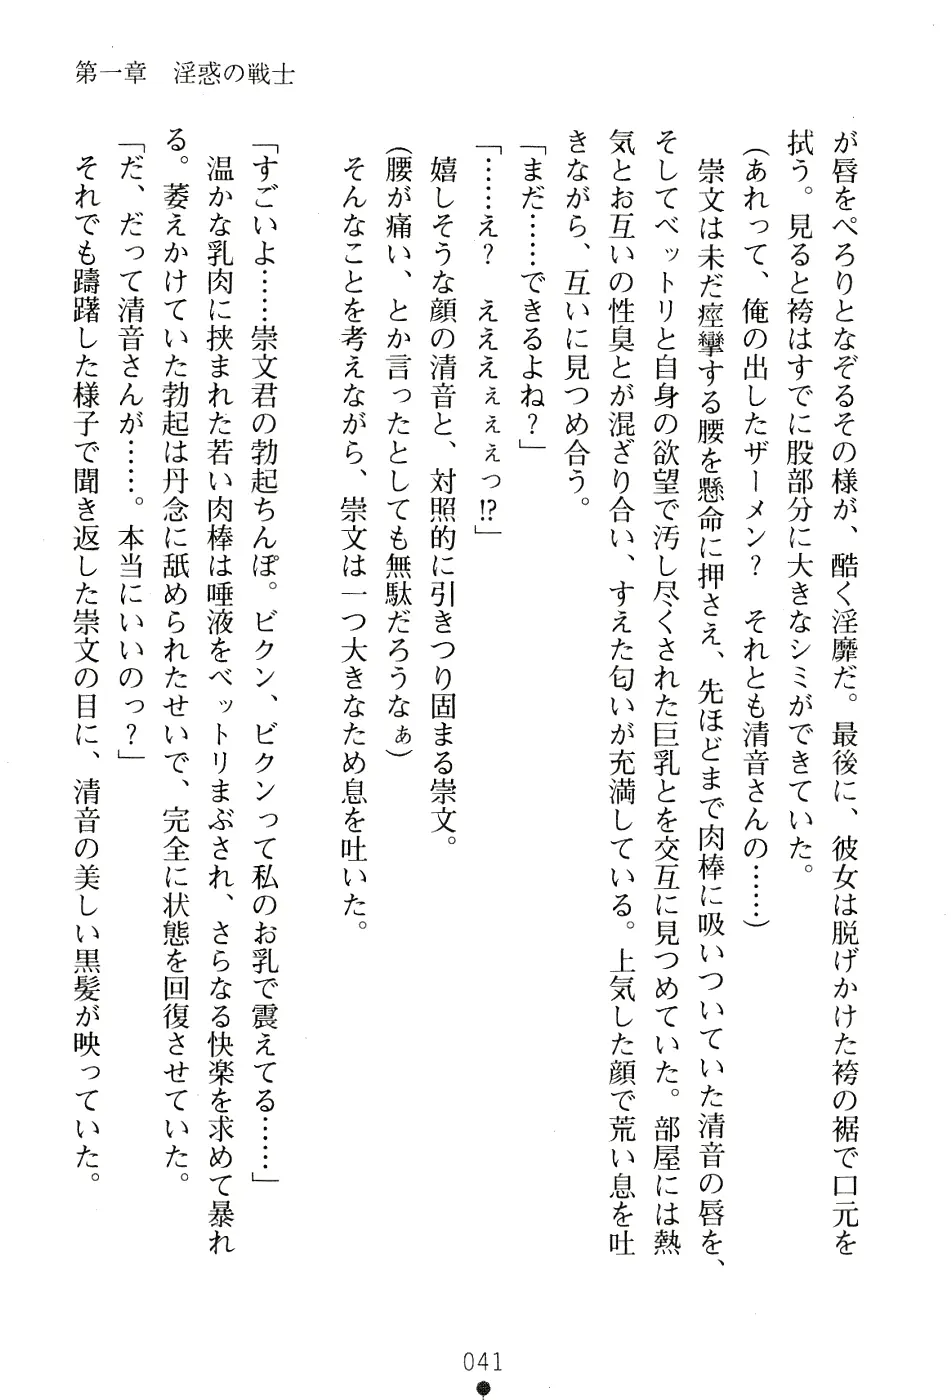 第一章　淫惑の戦士
が唇をぺろりとなぞるその様が、酷く淫靡だ。最後に、彼女は脱げかけた袴の裾で口元を
拭う。見ると袴はすでに股部分に大きなシミができていた。
(あれって、俺の出したザーメン？　それとも清音さんの……)
　崇文は未だ痙攣する腰を懸命に押さえ、先ほどまで肉棒に吸いついていた清音の唇を、
そしてベットリと自身の欲望で汚し尽くされた巨乳とを交互に見つめていた。部屋には熱
気とお互いの性臭とが混ざり合い、すえた匂いが充満している。上気した顔で荒い息を吐
きながら、互いに見つめ合う。
「まだ……できるよね？」
「……え？　えええぇぇぇっ!?」
　嬉しそうな顔の清音と、対照的に引きつり固まる崇文。
(腰が痛い、とか言ったとしても無駄だろうなぁ)
　そんなことを考えながら、崇文は一つ大きなため息を吐いた。
「すごいよ……崇文君の勃起ちんぽ。ビクン、ビクンって私のお乳で震えてる……」
　温かな乳肉に挟まれた若い肉棒は唾液をベットリまぶされ、さらなる快楽を求めて暴れ
る。萎えかけていた勃起は丹念に舐められたせいで、完全に状態を回復させていた。
「だ、だって清音さんが……。本当にいいのっ？」
　それでも躊躇した様子で聞き返した崇文の目に、清音の美しい黒髪が映っていた。
041